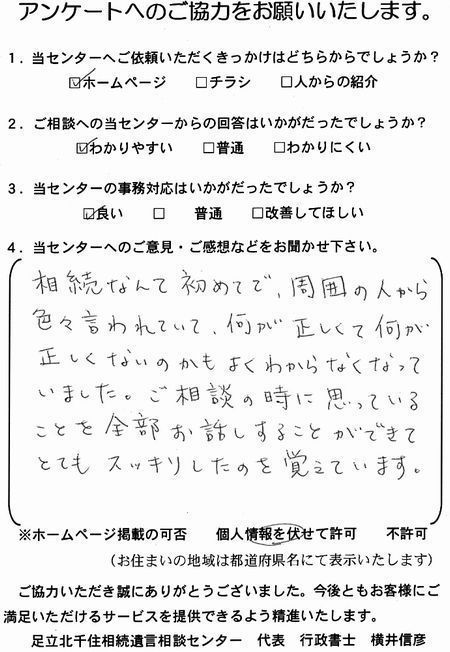 アンケートへのご協力をお願いいたします。
1．当センターへご依頼いただくきっかけはどちらからでしょうか？
☑ホームページ　□チラシ　□人からの紹介
2．ご相談への当センターからの回答はいかがだったでしょうか？
☑わかりやすい　□普通　□わかりにくい
3．当センターの事務対応はいかがだったでしょうか？
☑良い　□　普通　□改善してほしい
4．当センターへのご意見・ご感想などをお聞かせ下さい。
相続なんて初めてで、周囲の人から
色々言われていて、何が正しくて何が
正しくないのかもよくわからなくなって
いました。ご相談の時に思っている
ことを全部お話しすることができて
とてもスッキリしたのを覚えています。
※ホームページ掲載の可否　個人情報を伏せて許可　不許可
（お住まいの地域は都道府県名にて表示いたします）
ご協力いただき誠にありがとうございました。今後ともお客様にご
満足いただけるサービスを提供できるよう精進いたします。
足立北千住相続遺言相談センター　代表　行政書士　横井信彦